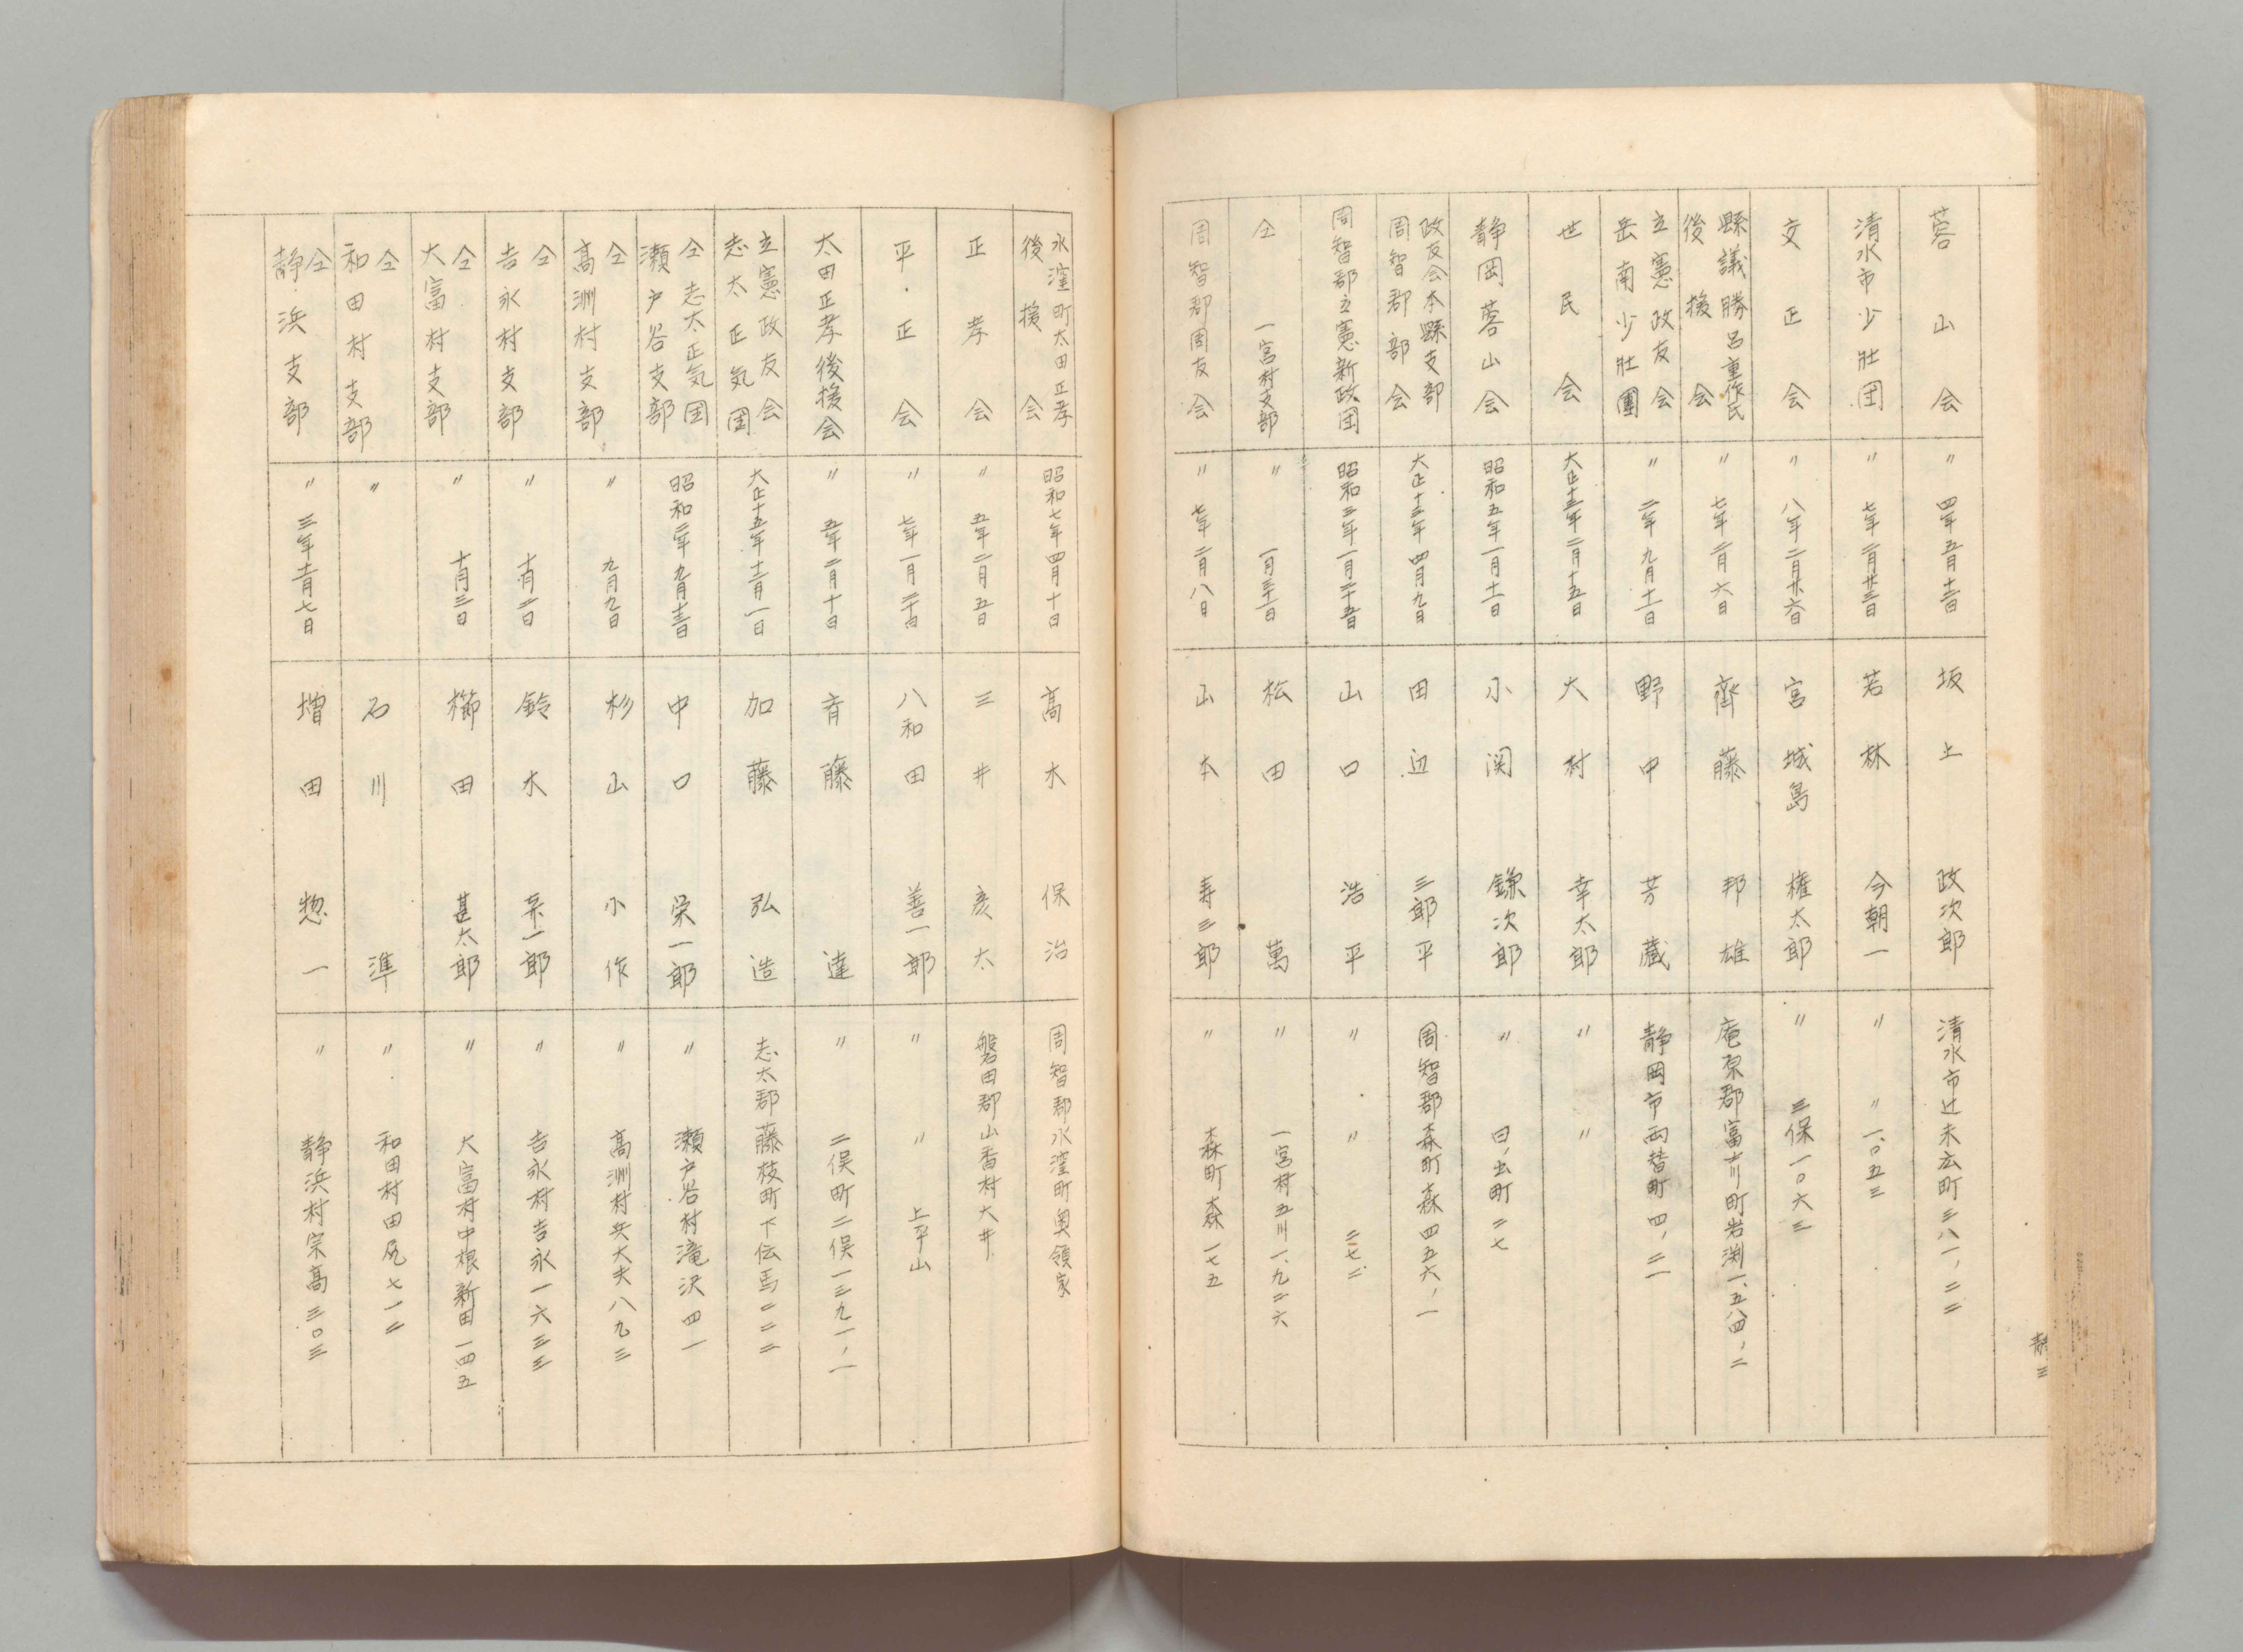 蓉山会 〃四年五月十三日 坂上政次郎 清水市辻末広町三八一、二二
清水市少壮団 〃七年二月廿三日 若林今朝一 〃〃一、〇五三
交正会 〃八年二月廿六日 宮城島権太郎 〃三保一〇六三
縣議勝呂重作氏
後援会 〃七年二月六日 齊藤邦雄 庵原郡富士川町岩渕一、五八四、二
立憲政友会
岳南少壮團 〃二年九月十一日 野中芳蔵 静岡市両替町四、二一
世民会 大正十三年二月十五日 大村幸太郎 〃〃
静岡蓉山会 昭和五年一月十一日 小関鎌次郎 〃日ノ出町二七
政友会本縣支部
周智郡部会 大正十三年四月九日 田辺三郎平 周智郡森町森四五六、一
周智郡立憲新政団 昭和三年一月二十五日 山口浩平 〃〃二七二
仝一宮村支部 〃一月三十一日 松田萬 〃一宮村五川一、九二六
周智郡周友会 〃七年二月八日 山本寿三郎 〃森町森一七五
静三
水窪町太田正孝
後援会 昭和七年四月十日 髙木保治 周智郡水窪町奥領家
正孝会 〃五年二月五日 三井彦太 磐田郡山香村大井
平正会 〃七年一月二十日 八和田善一郎 〃〃上平山
太田正孝後援会 〃五年二月十日 斉藤達 〃二俣町二俣一三九一、一
立憲政友会
志太正気団 大正十五年十二月一日 加藤弘造 志太郡藤枝町下伝馬二二二
仝志太正気団
瀬戸谷支部 昭和二年九月十三日 中口栄一郎 〃瀬戸谷村滝沢四一
仝
髙洲村支部 〃九月九日 杉山小作 〃髙洲村兵大夫八九三
仝
吉永村支部 〃十月二日 鈴木一郎 〃吉永村吉永一六三三
仝
大富村支部 〃十月三日 櫛田甚太郎 〃大富村中根新田一四五
仝
和田村支部 〃 石川準 〃和田村田尻七一二
仝
静浜支部 〃三年十二月七日 増田惣一 〃静浜村宗髙三〇三